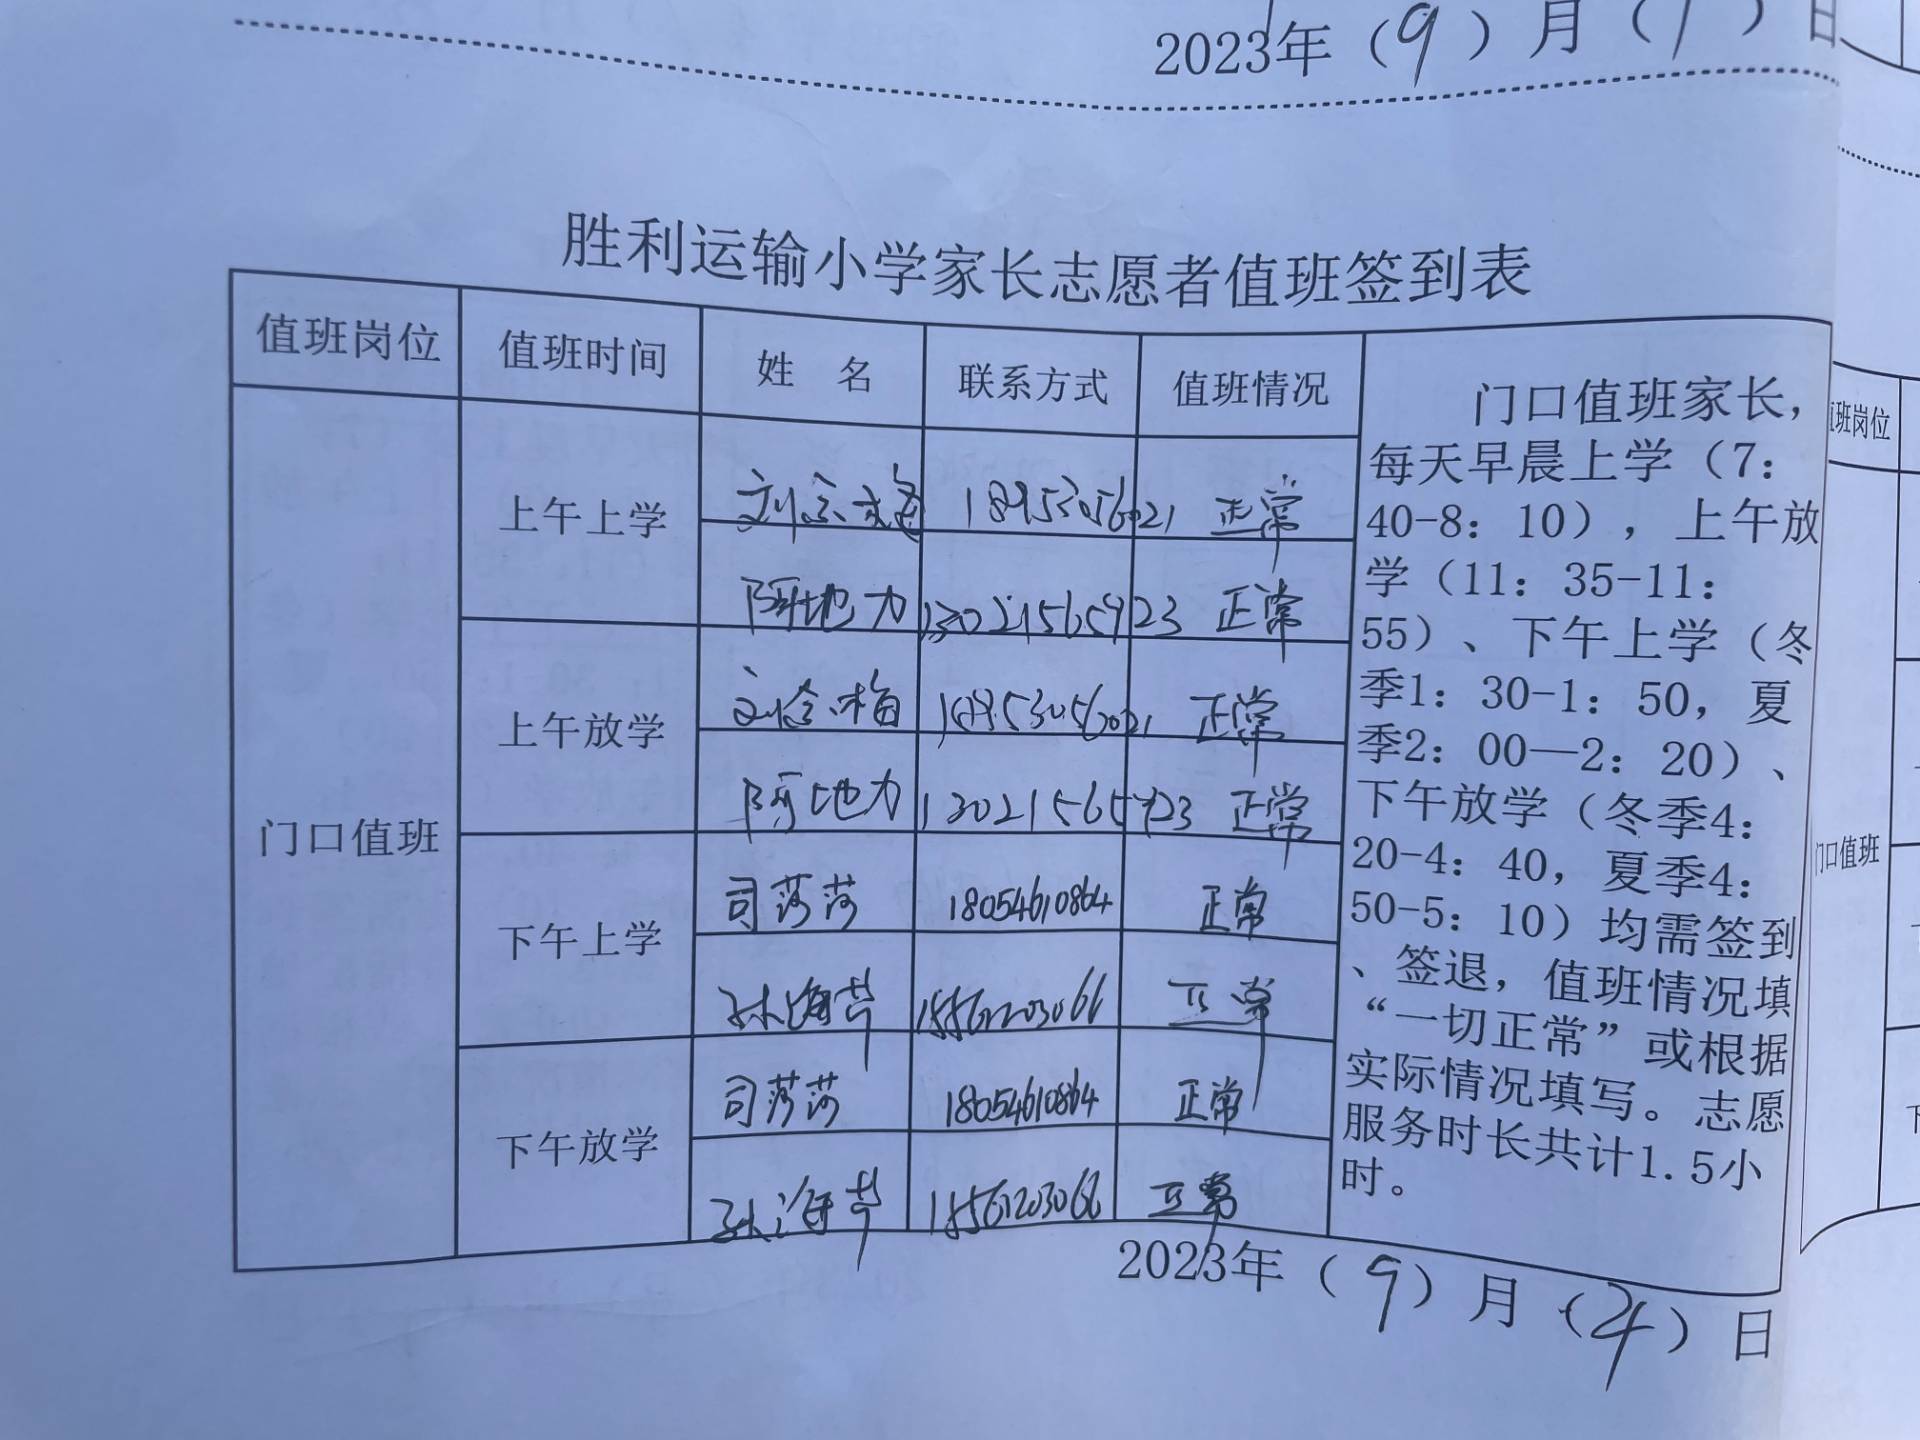 2023年（9）月（1）日
胜利运输小学家长志愿者值班签到表
值班岗位 值班时间 姓 名 联系方式 值班情况
门口值班
上午上学 18953056021 正常
阿地力 13021565923 正常
上午放学 18953056021 正常
阿地力 13021565923 正常
下午上学 司莎莎 18054610864 正常
孙海芹 15561203066 正常
下午放学 司莎莎 18054610864 正常
孙海芹 15561203066 正常
门口值班家长，
每天早晨上学（7：
40-8：10），上午放
学（11：35-11：
55）、下午上学（冬
季1：30-1：50，夏
季2：00—2：20）、
下午放学（冬季4：
20-4：40，夏季4：
50-5：10）均需签到
、签退，值班情况填
“一切正常”或根据
实际情况填写。志愿
服务时长共计1.5小
时。
2023年（9）月（4）日
值班岗位
门口值班